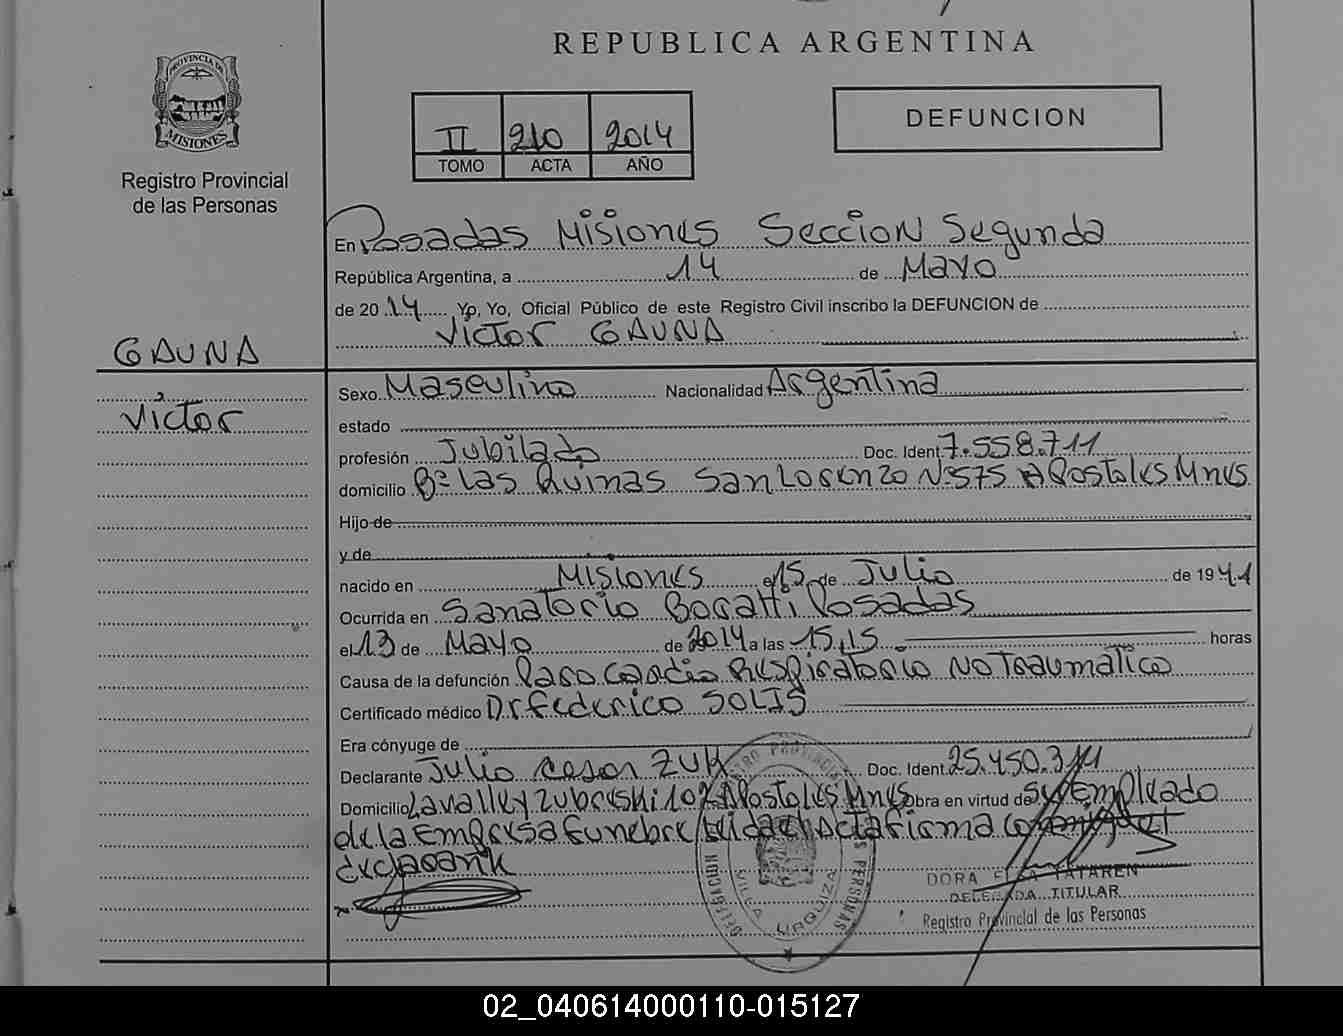 REPUBLICA ARGENTINA
PROVINCIA DE
MISIONES
Registro Provincial
de las Personas
II 210 2014
TOMO ACTA AÑO
DEFUNCION
En Posadas Misiones Seccion Segunda
República Argentina, a 14 de Mayo
de 20 14 Yo, Yo, Oficial Público de este Registro Civil inscribo la DEFUNCION de
Victor GAUNA
GAUNA
Victor
Sexo Masculino Nacionalidad Argentina
estado
profesión Jubilado Doc. Ident. 7.558.711
domicilio Bº Las Ruinas San Lorenzo Nº 575 Apostoles Mnes
Hijo de
y de
nacido en Misiones el 15 de Julio de 19 41
Ocurrida en Sanatorio Boratti Posadas
el 13 de Mayo de 2014 a las 15,15 horas
Causa de la defunción Paro Cardio Respiratorio No Traumatico
Certificado médico Dr Federico SOLIS
Era cónyuge de
Declarante Julio Cesar ZUK Doc. Ident. 25.450.314
Domicilio Lavalle y Zubreski 102 Apostoles Mnes Obra en virtud de ser Empleado
de la Empresa Funebre leida el Acta firma el
declarante
DORA TATAREN
DELEGADA TITULAR
Registro Provincial de las Personas
DELEGACION
VILLA URQUIZA
02_040614000110-015127